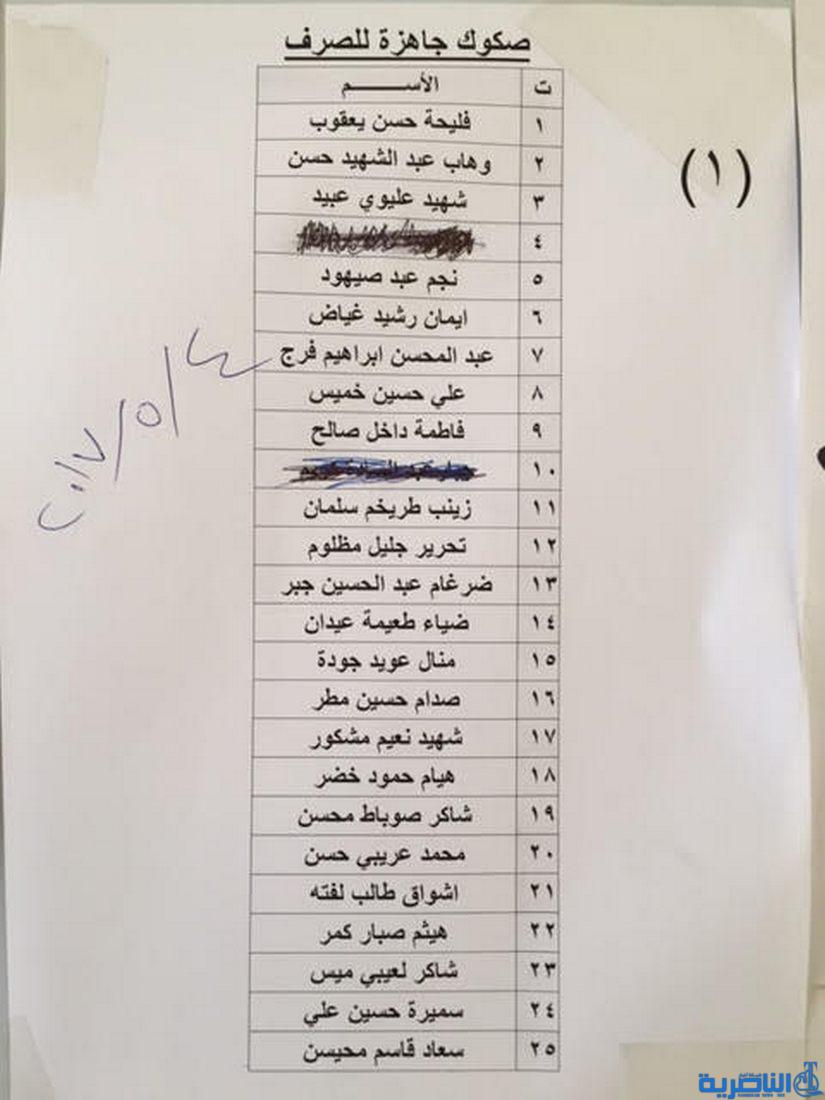 صكوك جاهزة للصرف
(١)
ت الأســـــــم
١ فليحة حسن يعقوب
٢ وهاب عبد الشهيد حسن
٣ شهيد عليوي عبيد
٤
٥ نجم عبد صيهود
٦ ايمان رشيد غياض
٧ عبد المحسن ابراهيم فرج
٨ علي حسين خميس
٩ فاطمة داخل صالح
١٠
١١ زينب طريخم سلمان
١٢ تحرير جليل مظلوم
١٣ ضرغام عبد الحسين جبر
١٤ ضياء طعيمة عيدان
١٥ منال عويد جودة
١٦ صدام حسين مطر
١٧ شهيد نعيم مشكور
١٨ هيام حمود خضر
١٩ شاكر صوباط محسن
٢٠ محمد عريبي حسن
٢١ اشواق طالب لفته
٢٢ هيثم صبار كمر
٢٣ شاكر لعيبي ميس
٢٤ سميرة حسين علي
٢٥ سعاد قاسم محيسن
٢٠١٧/٥/٤
الناصرية